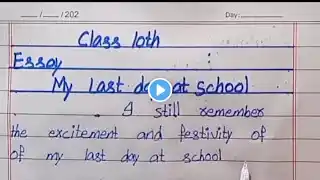 __/__/202
Day:
Class 10th
Essay :
My Last day at school
I still remember
the excitement and festivity of
of my last day at school